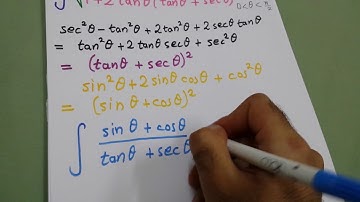 ∫√1 + 2 tanθ (tanθ + secθ) 0<θ<π/2
sec²θ - tan²θ + 2tan²θ + 2 secθ tanθ
= tan²θ + 2 tanθ secθ + sec²θ
= (tanθ + secθ)²
sin²θ + 2 sinθ cosθ + cos²θ
= (sinθ + cosθ)²
∫ (sinθ + cosθ)/(tanθ + secθ)